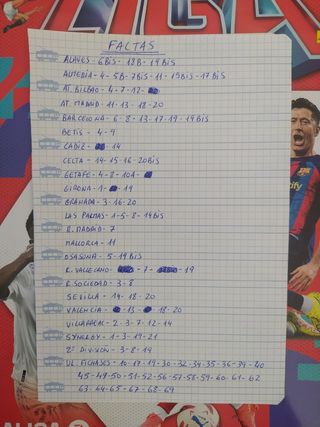 LIGA
FALTAS
ALAVES - 6BIS - 18B - 19BIS
AUTEDIA - 4 - 5B - 7BIS - 11 - 15BIS - 17BIS
AT. BILBAO - 4 - 7 - 12 -
AT. MADRID - 11 - 13 - 18 - 20
BARCELONA - 6 - 8 - 13 - 17 - 19 - 19BIS
BETIS - 4 - 9
CADIZ - 14
CELTA - 14 - 15 - 16 - 20BIS
GETAFE - 4 - 8 - 10A -
GIRONA - 1 - 19
GRANADA - 3 - 16 - 20
LAS PALMAS - 1 - 5 - 8 - 19BIS
R. MADRID - 7
MALLORCA - 11
OSASUNA - 5 - 19BIS
R. VALLECANO - 7 - 19
R. SOCIEDAD - 3 - 8
SEVILLA - 14 - 18 - 20
VALENCIA - 13 - 18 - 20
VILLARREAL - 2 - 3 - 7 - 12 - 14
SYNERGY - 1 - 3 - 19 - 21
2ª DIVISIÓN - 3 - 8 - 14
UL. FICHAJES - 10 - 17 - 19 - 30 - 32 - 34 - 35 - 36 - 39 - 40
45 - 49 - 50 - 51 - 52 - 56 - 57 - 58 - 59 - 60 - 61 - 62
63 - 64 - 65 - 67 - 68 - 69